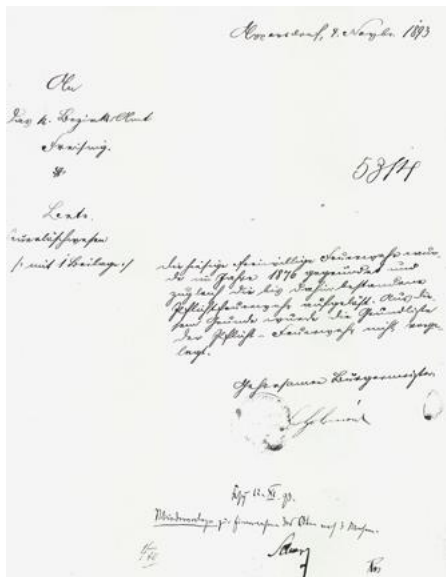 Appersdorf, 9. Novbr. 1893
An
das k. Bezirks Amt
Freising.
5314
Betr.
Feuerlöschwesen
/: mit 1 Beilage :/
Die hiesige freiwillige Feuerwehr wur-
de im Jahre 1876 gegründet und
zugleich die bis dahin bestandene
Pflichtfeuerwehr aufgelöst. Aus die-
sem Grunde wurde die Grundliste
der Pflicht-Feuerwehr nicht vorge-
legt.
Gehorsamer Bürgermeister
12. XI. 93.